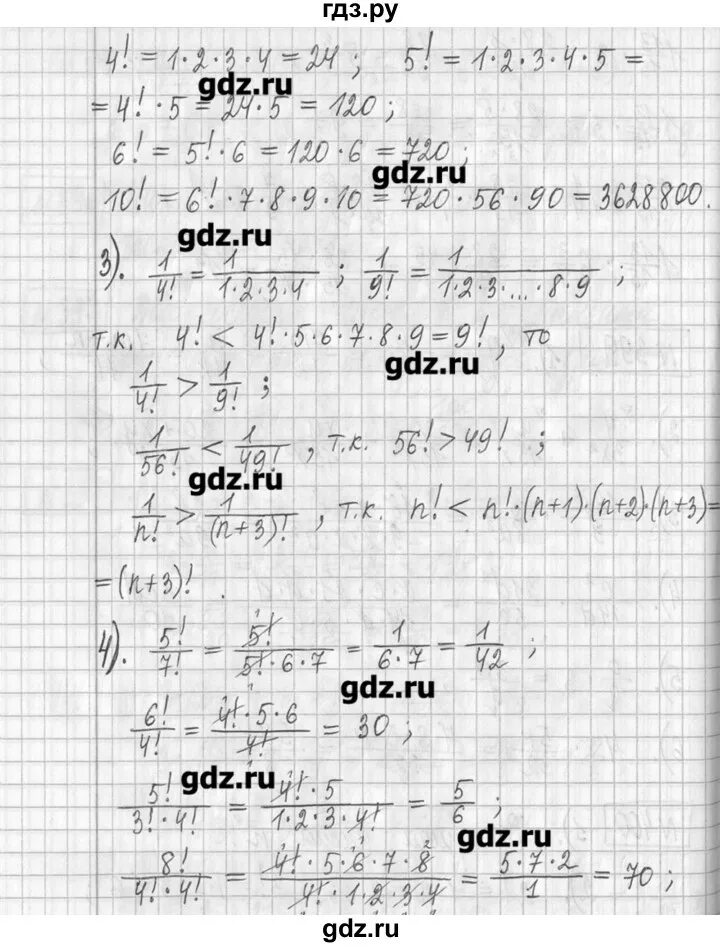 гдз.ру
4! = 1·2·3·4 = 24 ; 5! = 1·2·3·4·5 =
gdz.ru
= 4!·5 = 24·5 = 120 ;
6! = 5!·6 = 120·6 = 720 ;
gdz.ru
10! = 6!·7·8·9·10 = 720·56·90 = 3628800.
gdz.ru
3). 1/4! = 1/(1·2·3·4) ; 1/9! = 1/(1·2·3·...·8·9) ;
т.к. 4! < 4!·5·6·7·8·9 = 9! , то
gdz.ru
1/4! > 1/9! ;
1/56! < 1/49! , т.к. 56! > 49! ;
gdz.ru
1/n! > 1/(n+3)! , т.к. n! < n!·(n+1)·(n+2)·(n+3)=
= (n+3)! .
4). 5!/7! = 5!/(5!·6·7) = 1/(6·7) = 1/42 ;
gdz.ru
6!/4! = (4!·5·6)/4! = 30 ;
gdz.ru
5!/(3!·4!) = (4!·5)/(1·2·3·4!) = 5/6 ;
gdz.ru
8!/(4!·4!) = (4!·5·6·7·8)/(4!·1·2·3·4) = (5·7·2)/1 = 70 ;
gdz.ru